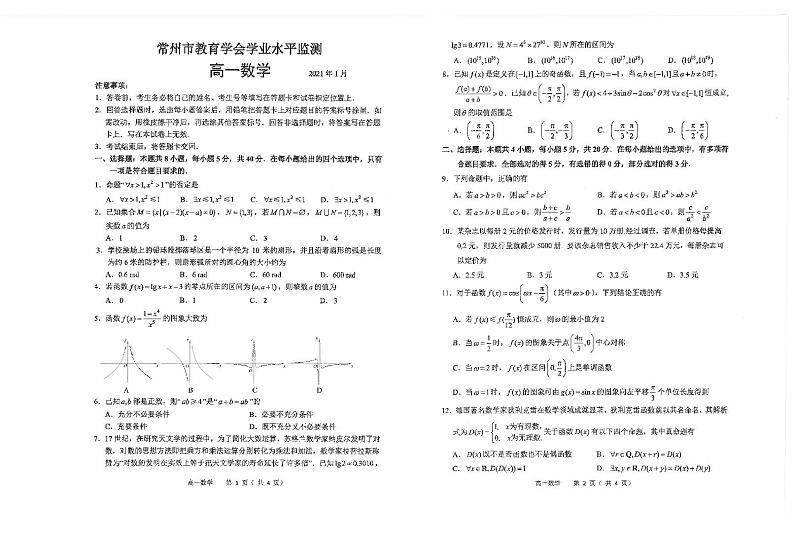 常州市教育学会学业水平监测
高一数学 2021年1月
注意事项：
1. 答卷前，考生务必将自己的姓名、考生号等填写在答题卡和试卷指定位置上.
2. 回答选择题时，选出每小题答案后，用铅笔把答题卡上对应题目的答案标号涂黑. 如
需改动，用橡皮擦干净后，再选涂其他答案标号. 回答非选择题时，将答案写在答题
卡上. 写在本试卷上无效.
3. 考试结束后，将答题卡交回.
一、选择题：本题共8小题，每小题5分，共40分. 在每小题给出的四个选项中，只有
一项是符合题目要求的.
1. 命题“∀x>1, x²>1”的否定是
A. ∀x>1, x²≤1 B. ∃x≤1, x²≤1 C. ∀x≤1, x²≤1 D. ∃x>1, x²≤1
2. 已知集合M={x|(x-2)(x-a)=0}, N={1,3}, 若M∩N≠∅, M∪N={1,2,3}, 则
实数a的值为
A. 1 B. 2 C. 3 D. 4
3. 学校操场上的铅球投掷落球区是一个半径为10米的扇形，并且沿着扇形的弧是长度
为约6米的防护栏，则扇形弧所对的圆心角的大小约为
A. 0.6 rad B. 6 rad C. 60 rad D. 600 rad
4. 若函数f(x)=lgx+x-3的零点所在的区间为(a,a+1), 则整数a的值为
A. 0 B. 1 C. 2 D. 3
5. 函数f(x)=(1-x⁴)/x²的图象大致为
A B C D
6. 已知a,b都是正数，则“ab≥4”是“a+b=ab”的
A. 充分不必要条件 B. 必要不充分条件
C. 充要条件 D. 既不充分又不必要条件
7. 17世纪，在研究天文学的过程中，为了简化大数运算，苏格兰数学家纳皮尔发明了对
数，对数的思想方法即把乘方和乘法运算分别转化为乘法和加法，数学家拉普拉斯称
赞为“对数的发明在实效上等于把天文学家的寿命延长了许多倍”. 已知lg2≈0.3010,
高一数学 第 1 页（共 4 页）
lg3≈0.4771, 设N=4⁵×27¹⁰, 则N所在的区间为
A. (10¹⁵,10¹⁶) B. (10¹⁶,10¹⁷) C. (10¹⁷,10¹⁸) D. (10¹⁸,10¹⁹)
8. 已知f(x)是定义在[-1,1]上的奇函数，且f(-1)=-1, 当a,b∈[-1,1]且a+b≠0时，
(f(a)+f(b))/(a+b)>0. 已知θ∈(-π/2,π/2), 若f(x)<4+3sinθ-2cos²θ对∀x∈[-1,1]恒成立，
则θ的取值范围是
A. (-π/6,π/2) B. (-π/2,-π/3) C. (-π/3,π/2) D. (-π/2,π/6)
二、选择题：本题共4小题，每小题5分，共20分. 在每小题给出的选项中，有多项符
合题目要求. 全部选对的得5分，有选错的得0分，部分选对的得3分.
9. 下列命题中，正确的有
A. 若a>b>0, 则ac²>bc² B. 若a<b<0, 则a²>ab>b²
C. 若a>b>0且c>0, 则(b+c)/(a+c)>b/a D. 若a<b<0且c<0, 则c/a²<c/b²
10. 某杂志以每册2元的价格发行时，发行量为10万册.经过调查，若单册价格每提高
0.2元，则发行量就减少5000册. 要该杂志销售收入不少于22.4万元，每册杂志可
以定价为
A. 2.5元 B. 3元 C. 3.2元 D. 3.5元
11. 对于函数f(x)=cos(ωx-π/6)（其中ω>0），下列结论正确的有
A. 若f(x)≤f(π/12)恒成立，则ω的最小值为2
B. 当ω=1/2时，f(x)的图象关于点(4π/3,0)中心对称
C. 当ω=2时，f(x)在区间(0,π/2)上是单调函数
D. 当ω=1时，f(x)的图象可由g(x)=sinx的图象向左平移π/3个单位长度得到
12. 德国著名数学家狄利克雷在数学领域成就显著，狄利克雷函数就以其名命名，其解析
式为D(x)={1, x为有理数, 0, x为无理数. 关于函数D(x)有以下四个命题，其中真命题有
A. D(x)既不是奇函数也不是偶函数 B. ∀r∈Q,D(x+r)=D(x)
C. ∀x∈R,D(D(x))=1 D. ∃x,y∈R,D(x+y)=D(x)+D(y)
高一数学 第 2 页（共 4 页）